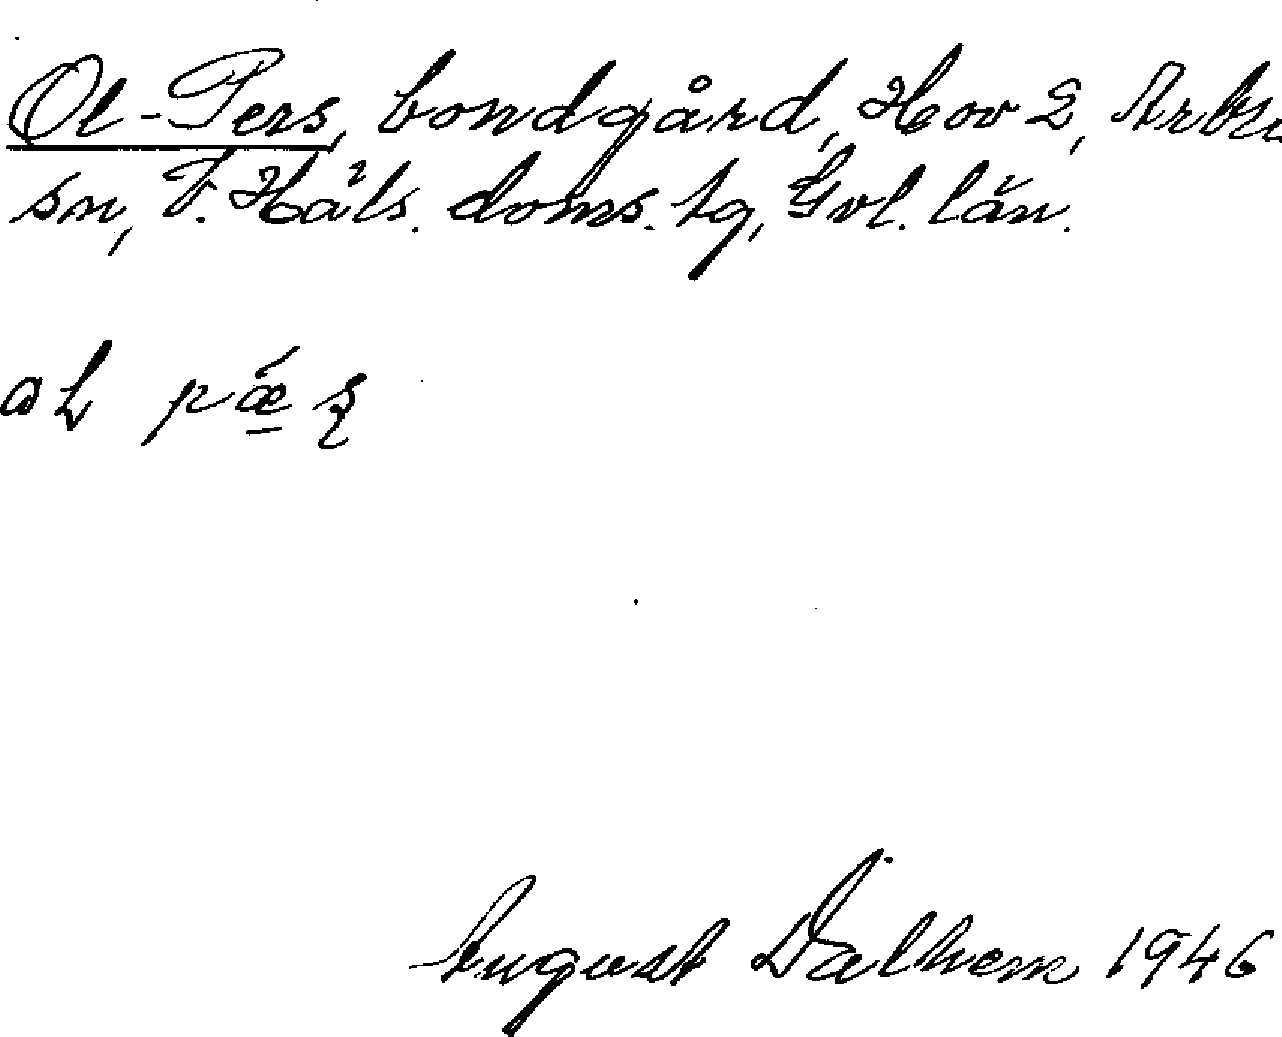 Ol-Pers, bondgård, Hov 2, Arbrå
sn, V. Häls. doms. tg, Gvl. län.
August Dalhem 1946